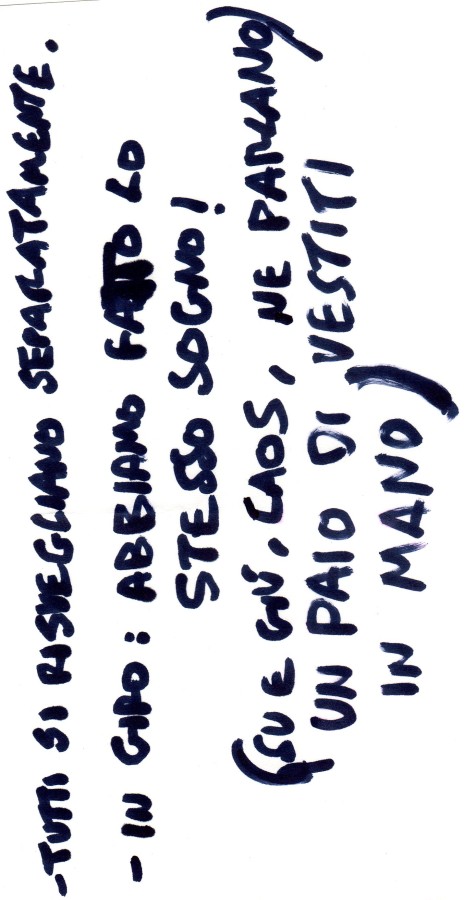 - TUTTI SI RISVEGLIANO SEPARATAMENTE.
- IN GIRO: ABBIAMO FATTO LO
STESSO SOGNO!
(SU E GIÙ, CAOS, NE PARLANO)
UN PAIO DI VESTITI
IN MANO)